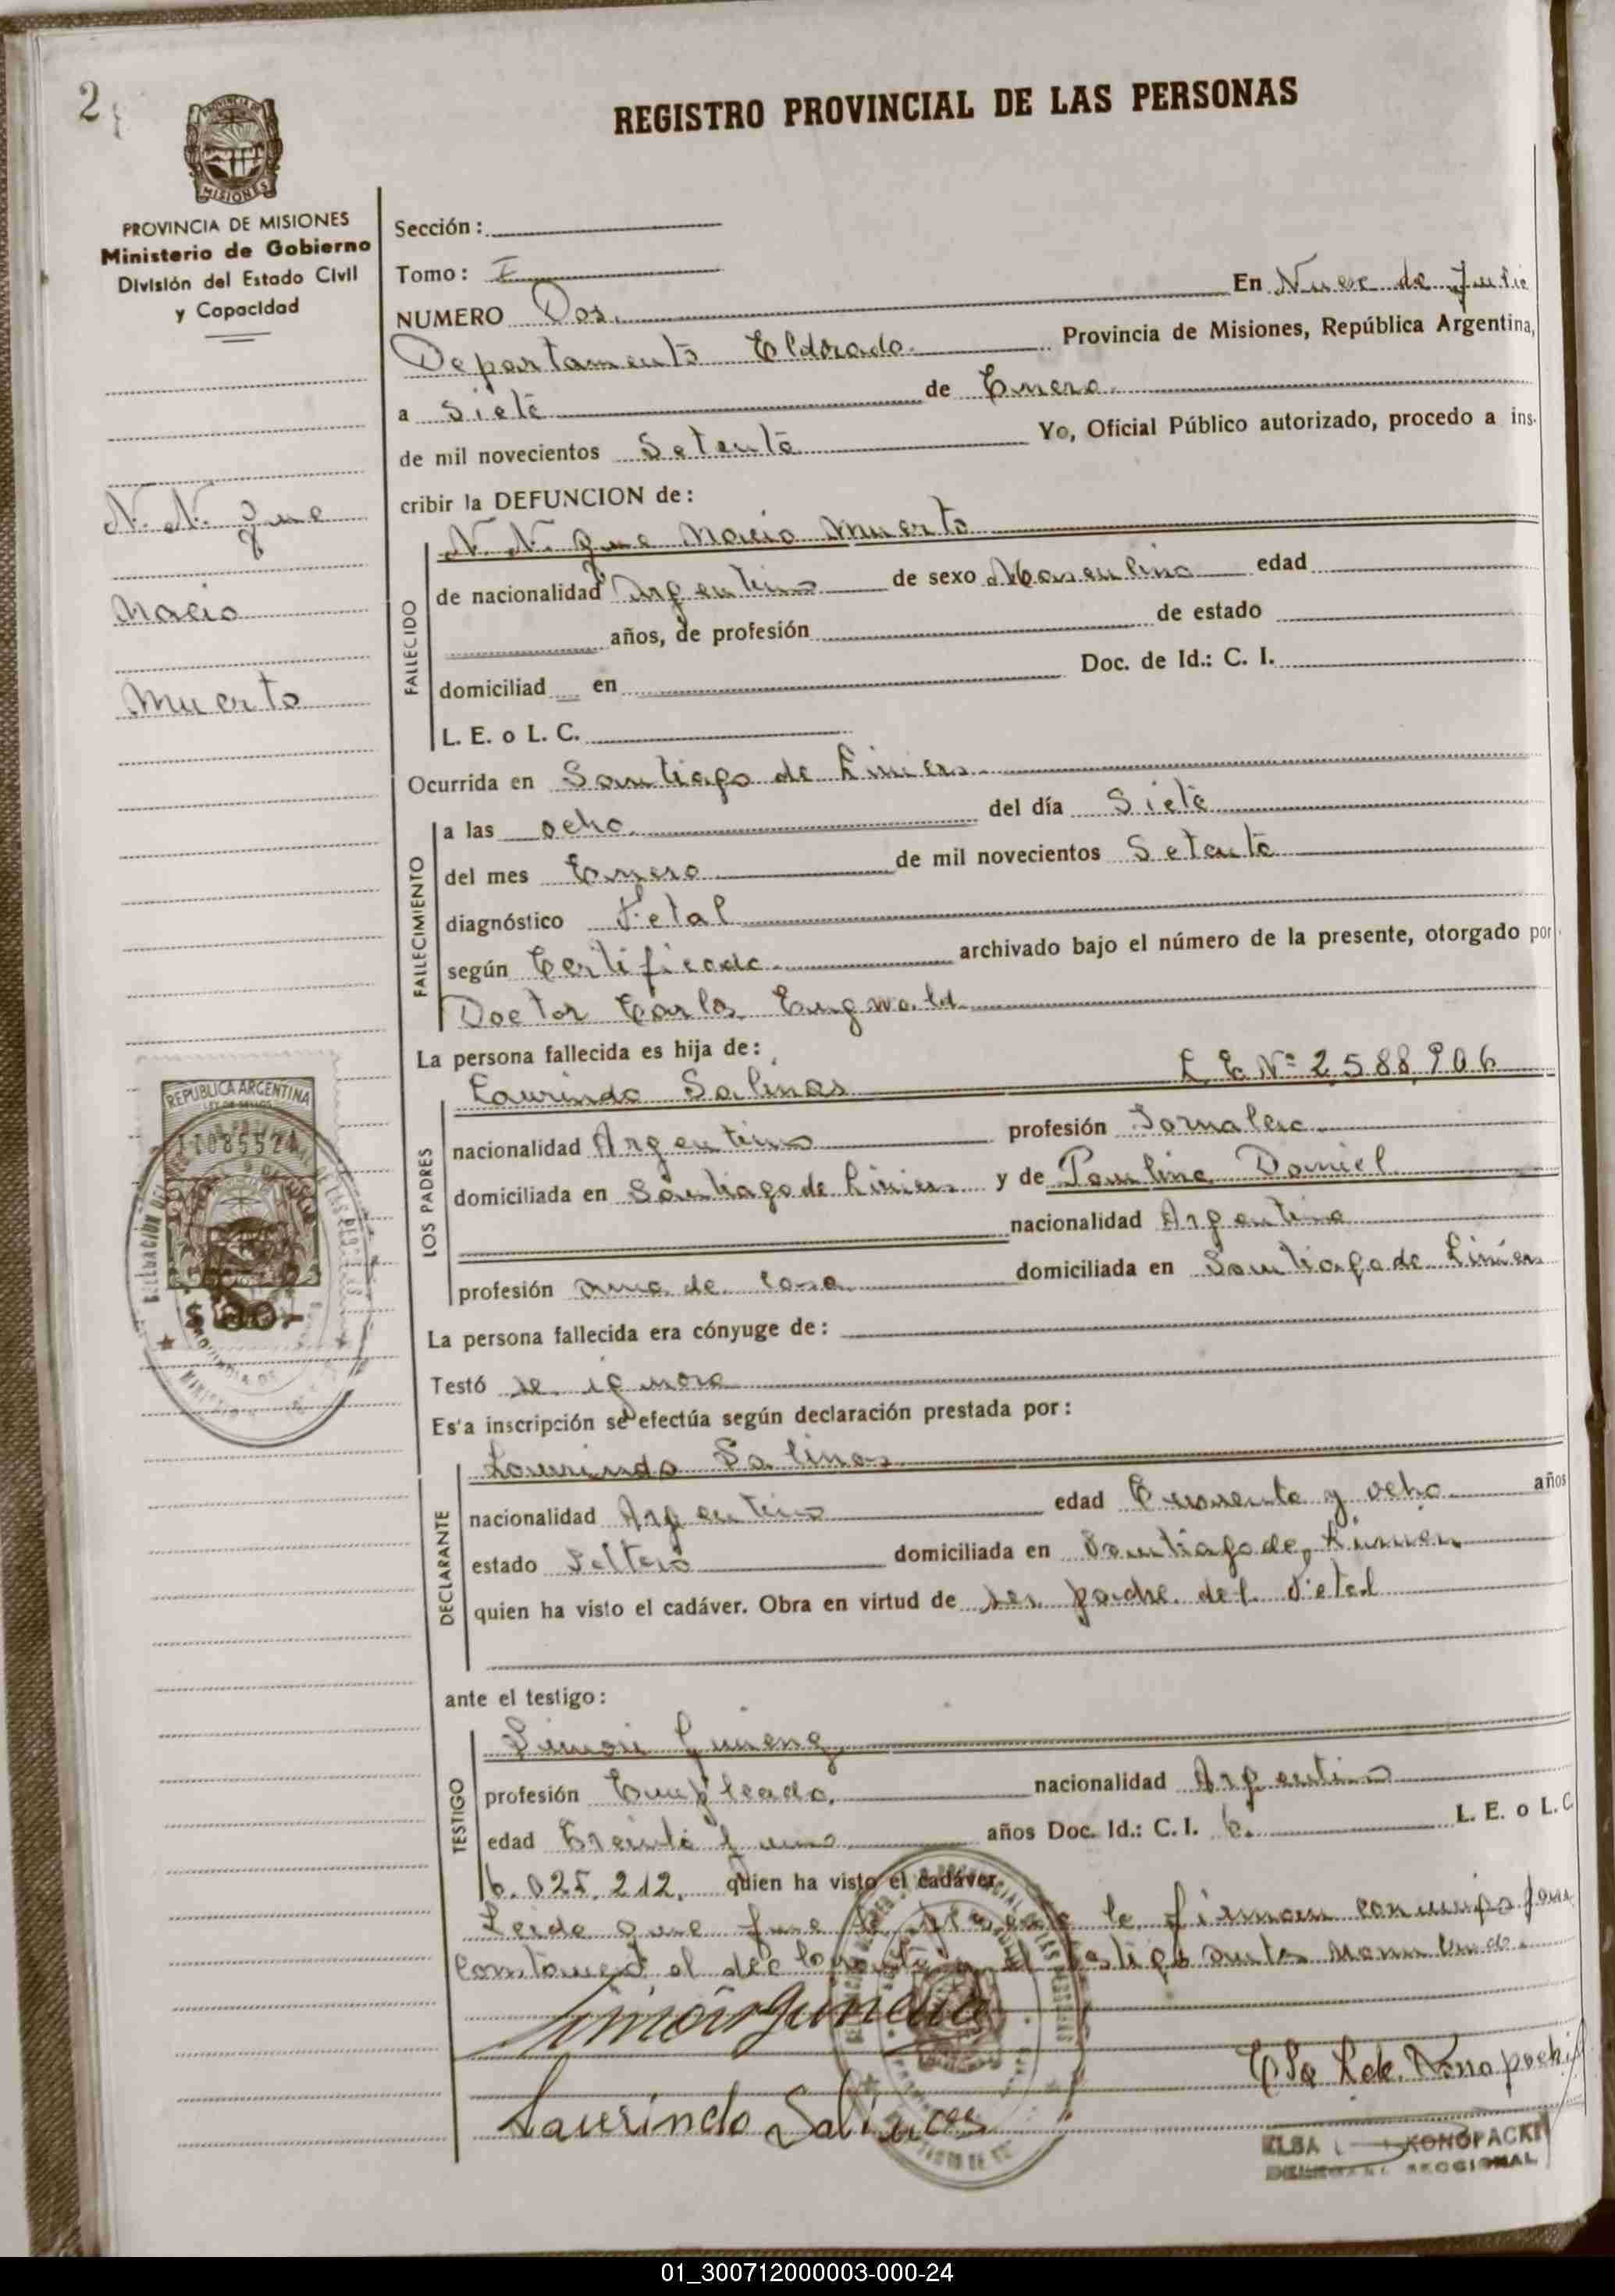 2
REGISTRO PROVINCIAL DE LAS PERSONAS
MISIONES
PROVINCIA DE MISIONES
Ministerio de Gobierno
División del Estado Civil
y Capacidad
Sección:
Tomo: I
NUMERO Dos. En Nueve de Julio
Departamento Eldorado. Provincia de Misiones, República Argentina,
a Siete de Enero.
de mil novecientos Setenta Yo, Oficial Público autorizado, procedo a ins-
cribir la DEFUNCION de:
N. N. que
Nacio
Muerto
FALLECIDO
N. N. que Nacio Muerto
de nacionalidad Argentino de sexo Masculino edad
años, de profesión de estado
domiciliad en Doc. de Id.: C. I.
L. E. o L. C.
Ocurrida en Santiago de Liniers
FALLECIMIENTO
a las ocho. del día Siete
del mes Enero de mil novecientos Setenta
diagnóstico Fetal
según Certificado archivado bajo el número de la presente, otorgado por
Doctor Carlos Engwald
La persona fallecida es hija de:
LOS PADRES
Laurindo Salinas L. E. Nº 2,588,906
nacionalidad Argentino profesión Jornalero
domiciliada en Santiago de Liniers y de Paulina Daniel
nacionalidad Argentina
profesión ama de casa domiciliada en Santiago de Liniers
La persona fallecida era cónyuge de:
Testó se ignora
Es'a inscripción se efectúa según declaración prestada por:
DECLARANTE
Laurindo Salinas
nacionalidad Argentino edad Cuarenta y ocho años
estado Soltero domiciliada en Santiago de Liniers
quien ha visto el cadáver. Obra en virtud de ser padre del Fetal
ante el testigo:
TESTIGO
Simon Gimenz
profesión Empleado. nacionalidad Argentino
edad Treinta y uno años Doc. Id.: C. I. L. E. o L. C.
6.025.212. quien ha visto el cadáver.
Leida que fue la presente la firman conmigo para
constancia el declarante y el testigo antes nombrado.
Laurindo Salinas
Elsa L de Konopacki
ELSA L KONOPACKI
SECCIONAL
REPUBLICA ARGENTINA
$ 30.-
01_300712000003-000-24